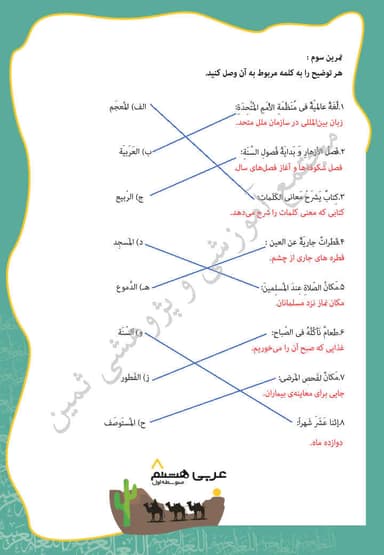 تمرین سوم :
هر توضیح را به کلمه مربوط به آن وصل کنید.
۱.لُغَةٌ عالَمِيَّةٌ فی مُنَظَّمَةِ الأُمَمِ المُتَّحِدَةِ: الف) المُعجَم
زبان بین‌المللی در سازمان ملل متحد.
ب) العَرَبيّة
۲.فَصلُ الأزهارِ وَ بِدايَةُ فُصولِ السَّنَةِ:
فصل شکوفه‌ها و آغاز فصل‌های سال
۳.کِتابٌ يَشرَحُ مَعانی الکَلِماتِ: ج) الرَّبيع
کتابی که معنی کلمات را شرح می‌دهد.
۴.قَطَراتٌ جاريَةٌ عن العين : د) المَسجِد
قطره های جاری از چشم.
۵.مَکانُ الصَّلاةِ عِندَ المُسلِمينَ: هـ) الدُّموع
مکان نماز نزد مسلمانان.
۶.طَعامٌ نَأکُلُهُ فی الصَّباح: و) السَّنَة
غذایی که صبح آن را می‌خوریم.
۷.مَکانٌ لِفَحصِ المَرضی: ز) الفَطور
جایی برای معاینه‌ی بیماران.
۸.إثنا عَشَرَ شَهراً: ح) المُستَوصَف
دوازده ماه.
مجتمع آموزشی و پژوهشی ثمین
عربی هشتم ۸
متوسطه اول